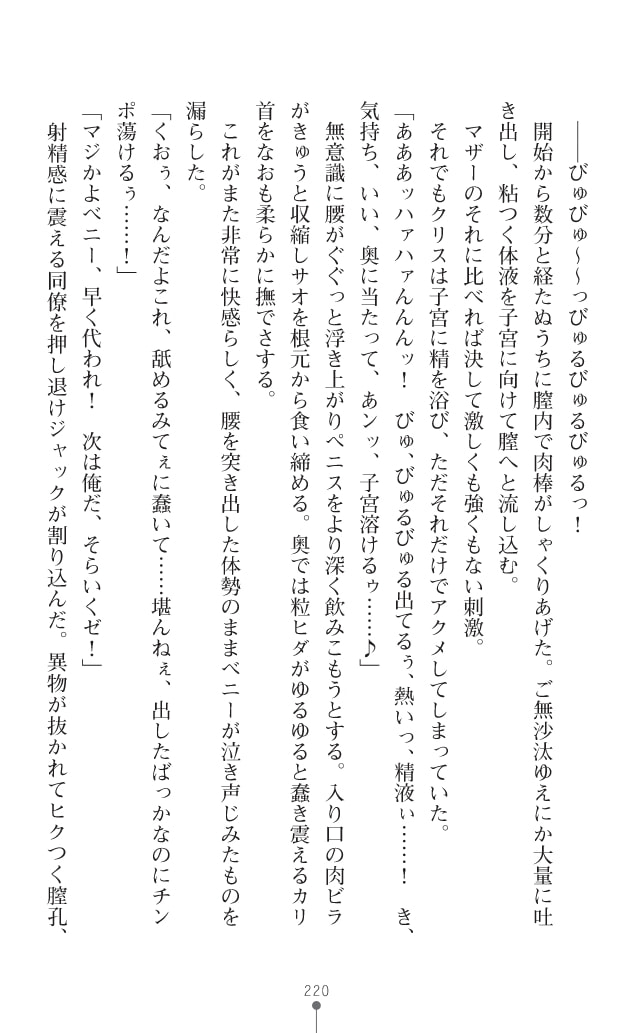 ――びゅびゅ～～っびゅるびゅるびゅるっ！
開始から数分と経たぬうちに膣内で肉棒がしゃくりあげた。ご無沙汰ゆえにか大量に吐
き出し、粘つく体液を子宮に向けて膣へと流し込む。
マザーのそれに比べれば決して激しくも強くもない刺激。
それでもクリスは子宮に精を浴び、ただそれだけでアクメしてしまっていた。
「あああッハァハァんんんッ！　びゅ、びゅるびゅる出てるぅ、熱いっ、精液ぃ……！　き、
気持ち、いい、奥に当たって、あンッ、子宮溶けるゥ……♪」
無意識に腰がぐぐっと浮き上がりペニスをより深く飲みこもうとする。入り口の肉ビラ
がきゅうと収縮しサオを根元から食い締める。奥では粒ヒダがゆるゆると蠢き震えるカリ
首をなおも柔らかに撫でさする。
これがまた非常に快感らしく、腰を突き出した体勢のままベニーが泣き声じみたものを
漏らした。
「くおぅ、なんだよこれ、舐めるみてぇに蠢いて……堪んねぇ、出したばっかなのにチン
ポ蕩けるぅ……！」
「マジかよベニー、早く代われ！　次は俺だ、そらいくぜ！」
射精感に震える同僚を押し退けジャックが割り込んだ。異物が抜かれてヒクつく膣孔、
220